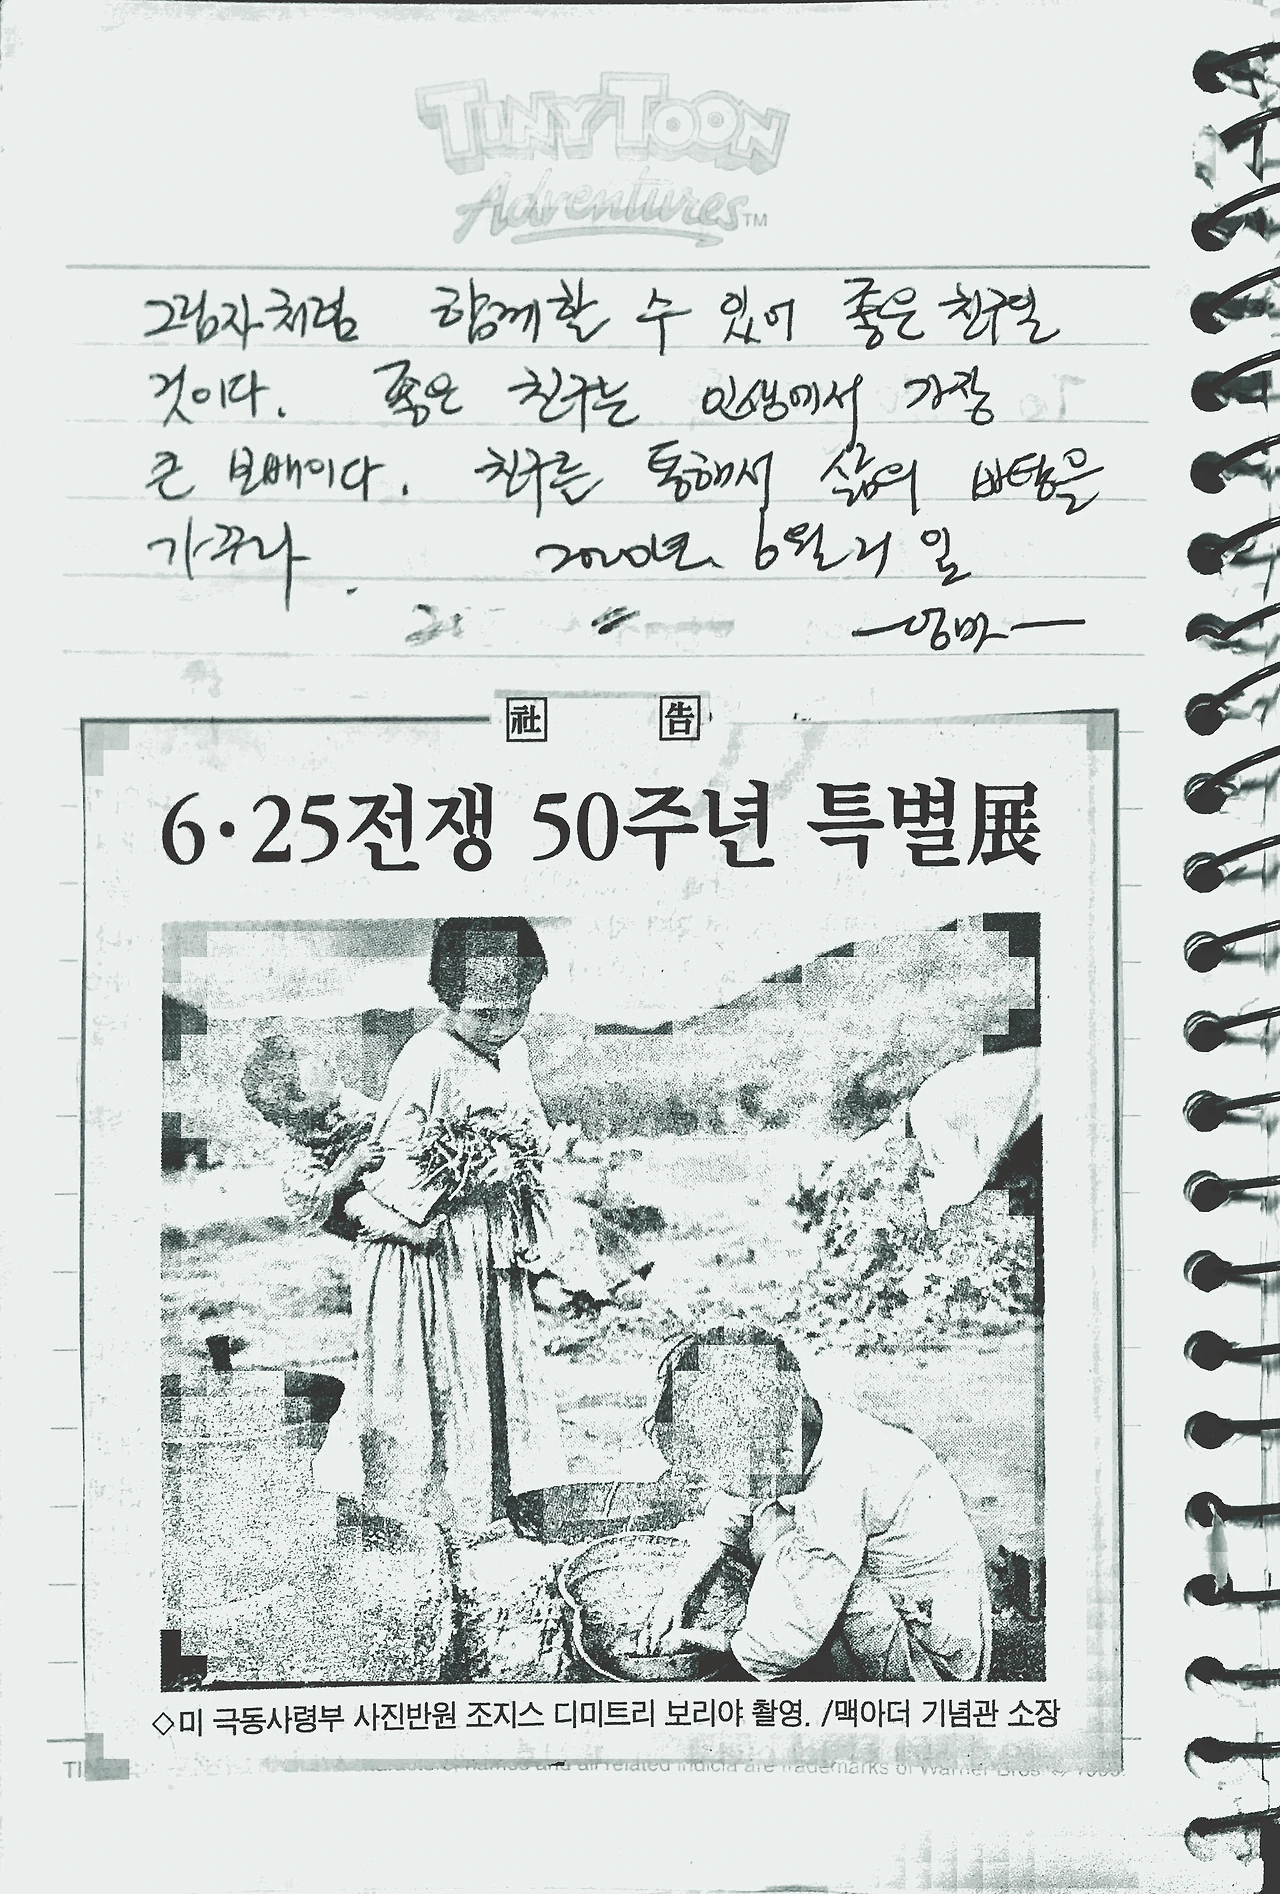 TINY TOON
Adventures™
그림자처럼 함께할 수 있어 좋은 친구일
것이다. 좋은 친구는 인생에서 가장
큰 보배이다. 친구를 통해서 삶의 바탕을
가꾸라. 2000년. 6월 21일
-엄마-
社 告
6·25전쟁 50주년 특별展
◇미 극동사령부 사진반원 조지스 디미트리 보리아 촬영. /맥아더 기념관 소장
names and all related indicia are trademarks of Warner Bros. ©